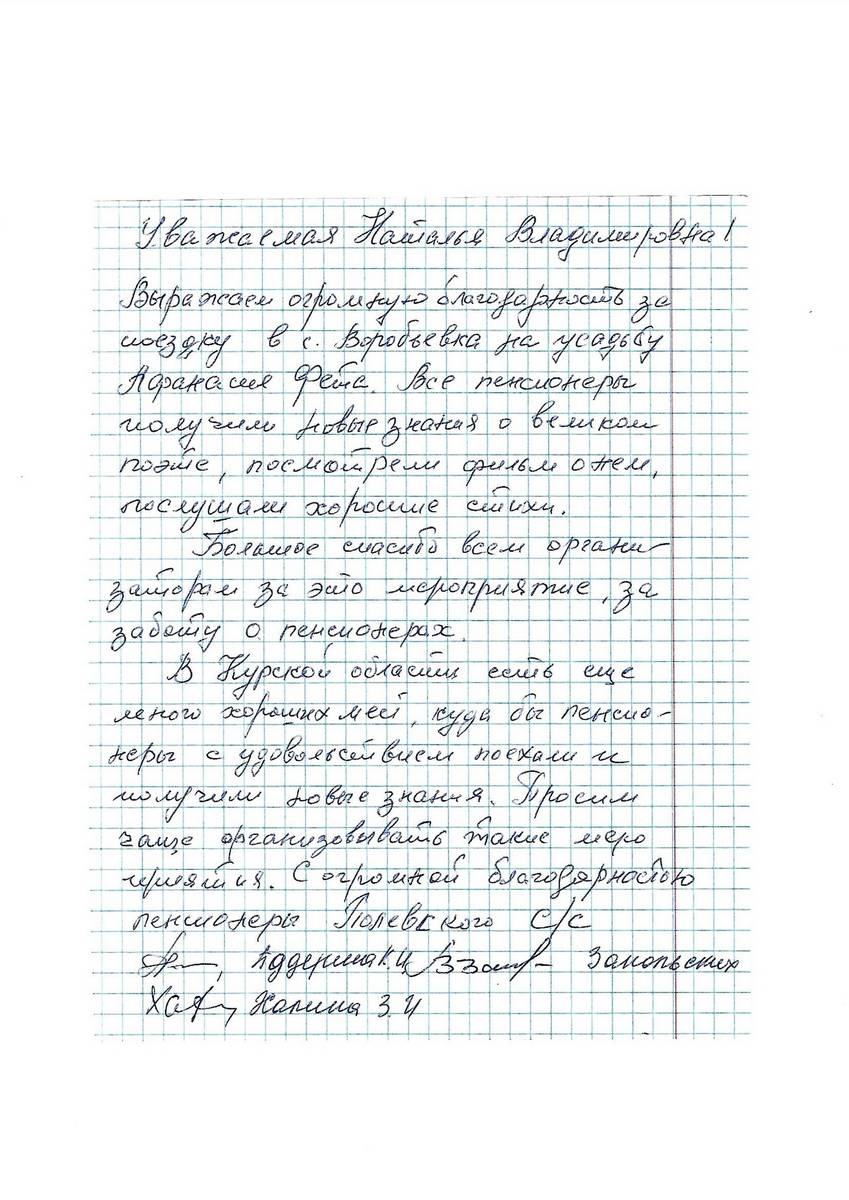 Уважаемая Наталья Владимировна!
Выражаем огромную благодарность за
поездку в с. Воробьевка на усадьбу
Афанасия Фета. Все пенсионеры
получили новые знания о великом
поэте, посмотрели фильм о нем,
послушали хорошие стихи.
Большое спасибо всем органи-
заторам за это мероприятие, за
заботу о пенсионерах.
В Курской области есть еще
много хороших мест, куда бы пенсио-
неры с удовольствием поехали и
получили новые знания. Просим
чаще организовывать такие меро
приятия. С огромной благодарностью
пенсионеры Полевского С/С
З.И